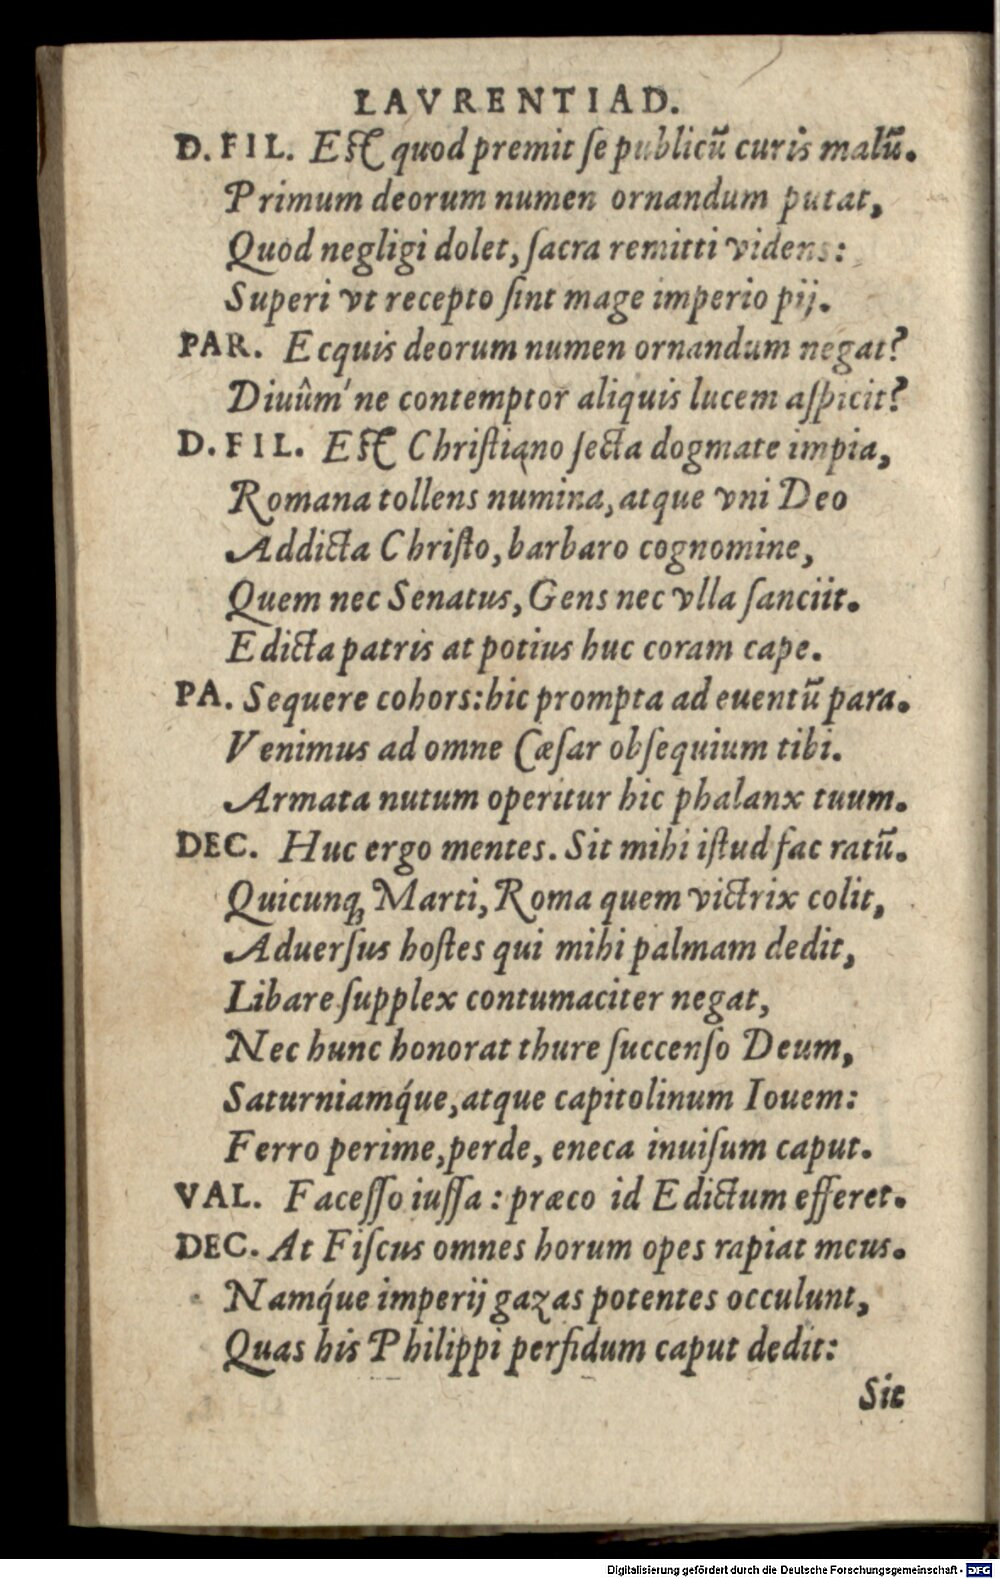 LAVRENTIAD.
D. FIL. Est quod premit se publicū curis malū.
Primum deorum numen ornandum putat,
Quod negligi dolet, sacra remitti videns:
Superi vt recepto sint mage imperio pij.
PAR. Ecquis deorum numen ornandum negat?
Diuûm´ne contemptor aliquis lucem aspicit?
D. FIL. Est Christiano secta dogmate impia,
Romana tollens numina, atque vni Deo
Addicta Christo, barbaro cognomine,
Quem nec Senatus, Gens nec vlla sanciit.
Edicta patris at potius huc coram cape.
PA. Sequere cohors: hic prompta ad euentū para.
Venimus ad omne Cæsar obsequium tibi.
Armata nutum operitur hic phalanx tuum.
DEC. Huc ergo mentes. Sit mihi istud fac ratū.
Quicunq; Marti, Roma quem victrix colit,
Aduersus hostes qui mihi palmam dedit,
Libare supplex contumaciter negat,
Nec hunc honorat thure succenso Deum,
Saturniamq́ue, atque capitolinum Iouem:
Ferro perime, perde, eneca inuisum caput.
VAL. Facesso iussa: præco id Edictum efferet.
DEC. At Fiscus omnes horum opes rapiat meus.
Namq́ue imperij gazas potentes occulunt,
Quas his Philippi perfidum caput dedit:
Sit
Digitalisierung gefördert durch die Deutsche Forschungsgemeinschaft - DFG